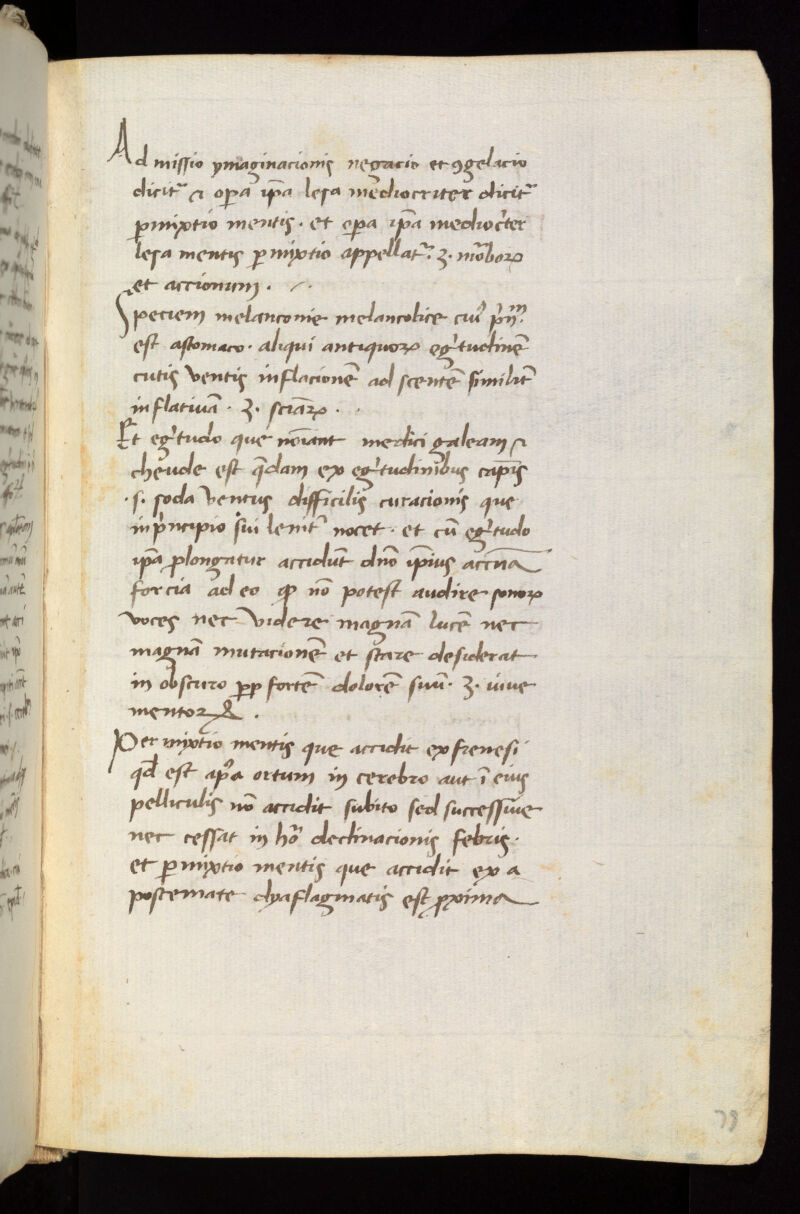 Ad missio ymaginacionis negacio et ꝯgelacio
dicitᷣ ⁊ opa͞ ip͞a lesa mediocriter dicitᷣ
ꝑmixtio mentis · et opa͞ ip͞a mediocᷣter
lesa mentis ꝑmixtio appellatᷣ · 3 · moᷣboꝝ
et accionum ·
Speciem melanconie melancolice cuiᷣ
est astomaco · aliqui antiquoꝝ egᷣtudine͞
cutis ventis inflacione͞ ad scente͞ similit͞
inflativa͞ · 3 · sciaꝝ ·
Et egᷣtudo que no͞iant medici galeam ⁊
cheude est q͞dam ex egᷣtudinibus capi͞s
· s · soda ventus difficilis curacionis que
in pᷣncipio sui lenitᷣ nocet · et cu͞ egᷣtudo
ip͞a ꝓlongatur accidu͞t dn͞o ip͞ius
forcia adeo ꝙ no͞ potest audire sonoꝝ
voces nec videre magna͞ luce͞ nec
magna͞ mutacione͞ et stare desiderat
in obscuro ꝓp forte͞ dolore͞ suu͞ · 3 · iuve
mentoꝝ
Per mixtio mentis que accidit ex frenesi
qd͞ est ap͞a ortum in cerebro aut i͞ eius
pelliculis no͞ accidit subito sed successive
nec cessat in hoᷣ͞ declinacionis febris ·
et ꝑmixtio mentis que accidit ex a
postemate dyaflagmatis est ꝓxima
78